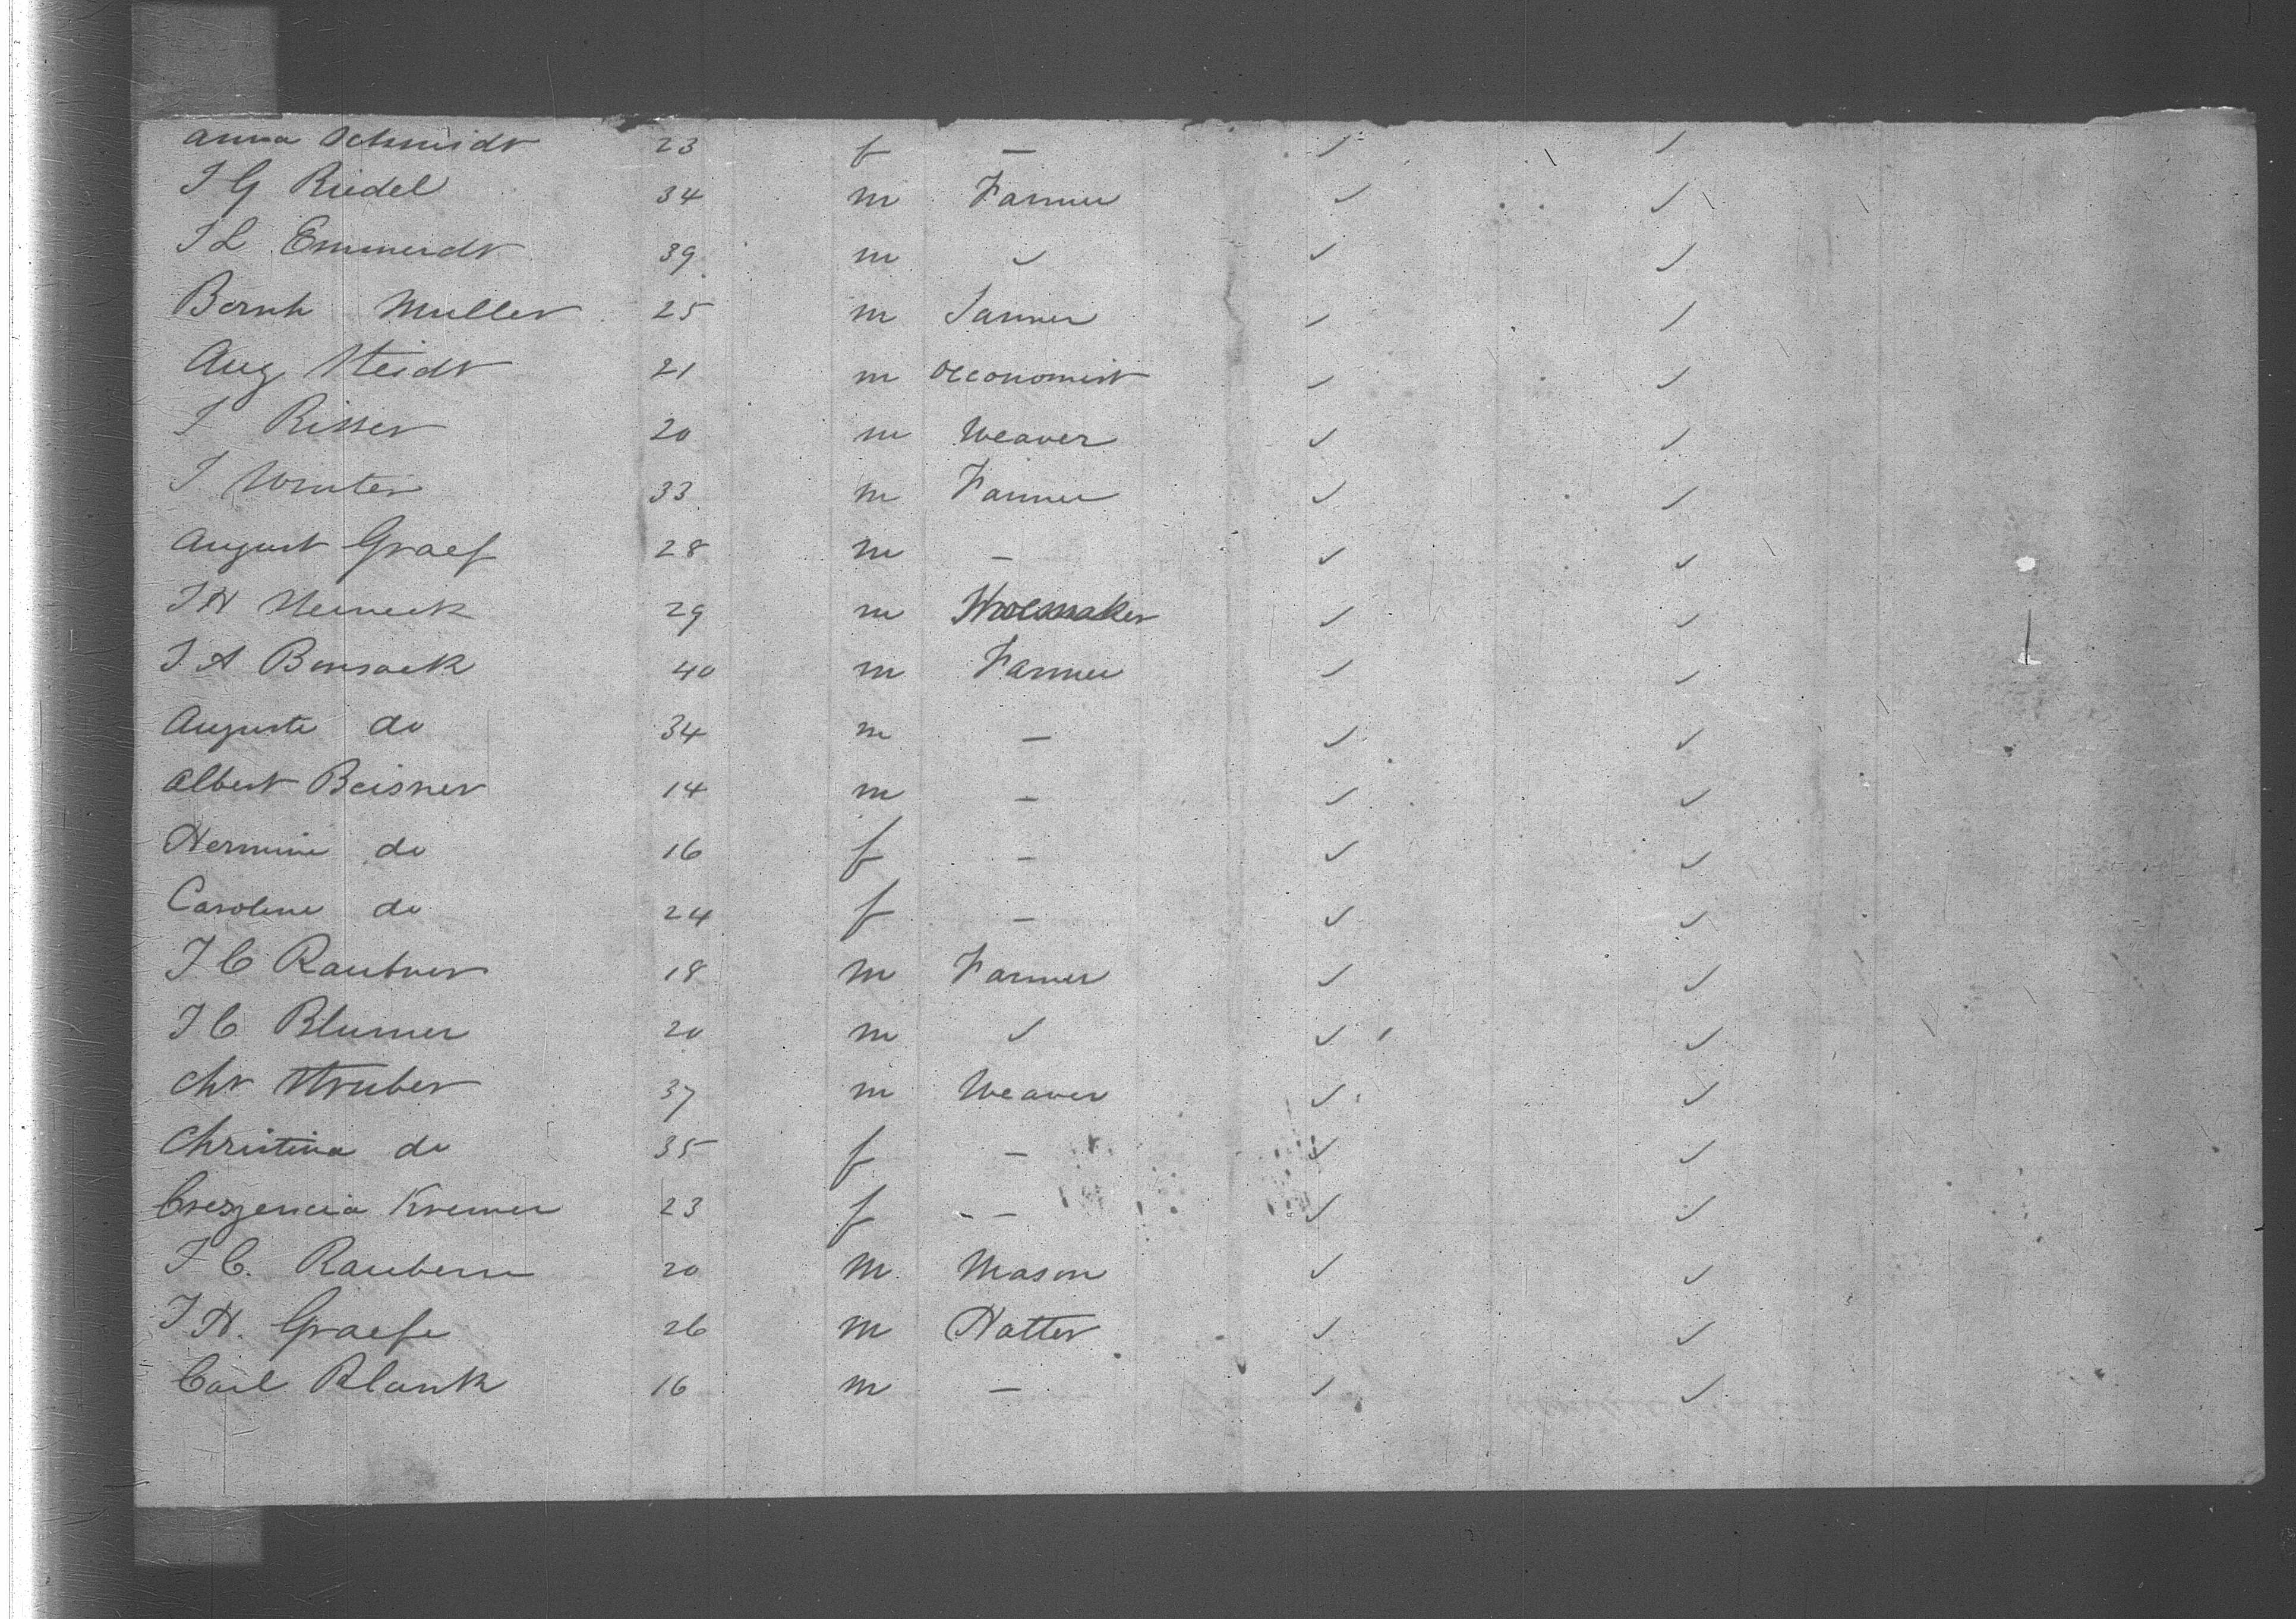 Anna Schmidt 23 f —
J G Riedel 34 m Farmer ✓ ✓
J L Emmerdt 39 m ✓ ✓ ✓
Bernh Muller 25 m Tanner ✓ ✓
Aug Steidt 21 m oeconomist ✓ ✓
J Risser 20 m Weaver ✓ ✓
J Winter 33 m Farmer ✓ ✓
August Graef 28 m — ✓ ✓
J H 29 m Shoemaker ✓ ✓
J A Bonsack 40 m Farmer ✓ ✓
Auguste do 34 m — ✓ ✓
Albert Beisner 14 m — ✓ ✓
Hermine do 16 f — ✓ ✓
Caroline do 24 f — ✓ ✓
J C Rautner 18 m Farmer ✓ ✓
J C Blumer 20 m ✓ ✓ ✓
Chr Struber 37 m Weaver ✓ ✓
Christina do 35 f — ✓ ✓
Creszencia Kremer 23 f — ✓ ✓
J C. Raubenn 20 m Mason ✓ ✓
J H. Graefe 26 m Hatter ✓ ✓
Carl Blank 16 m — ✓ ✓